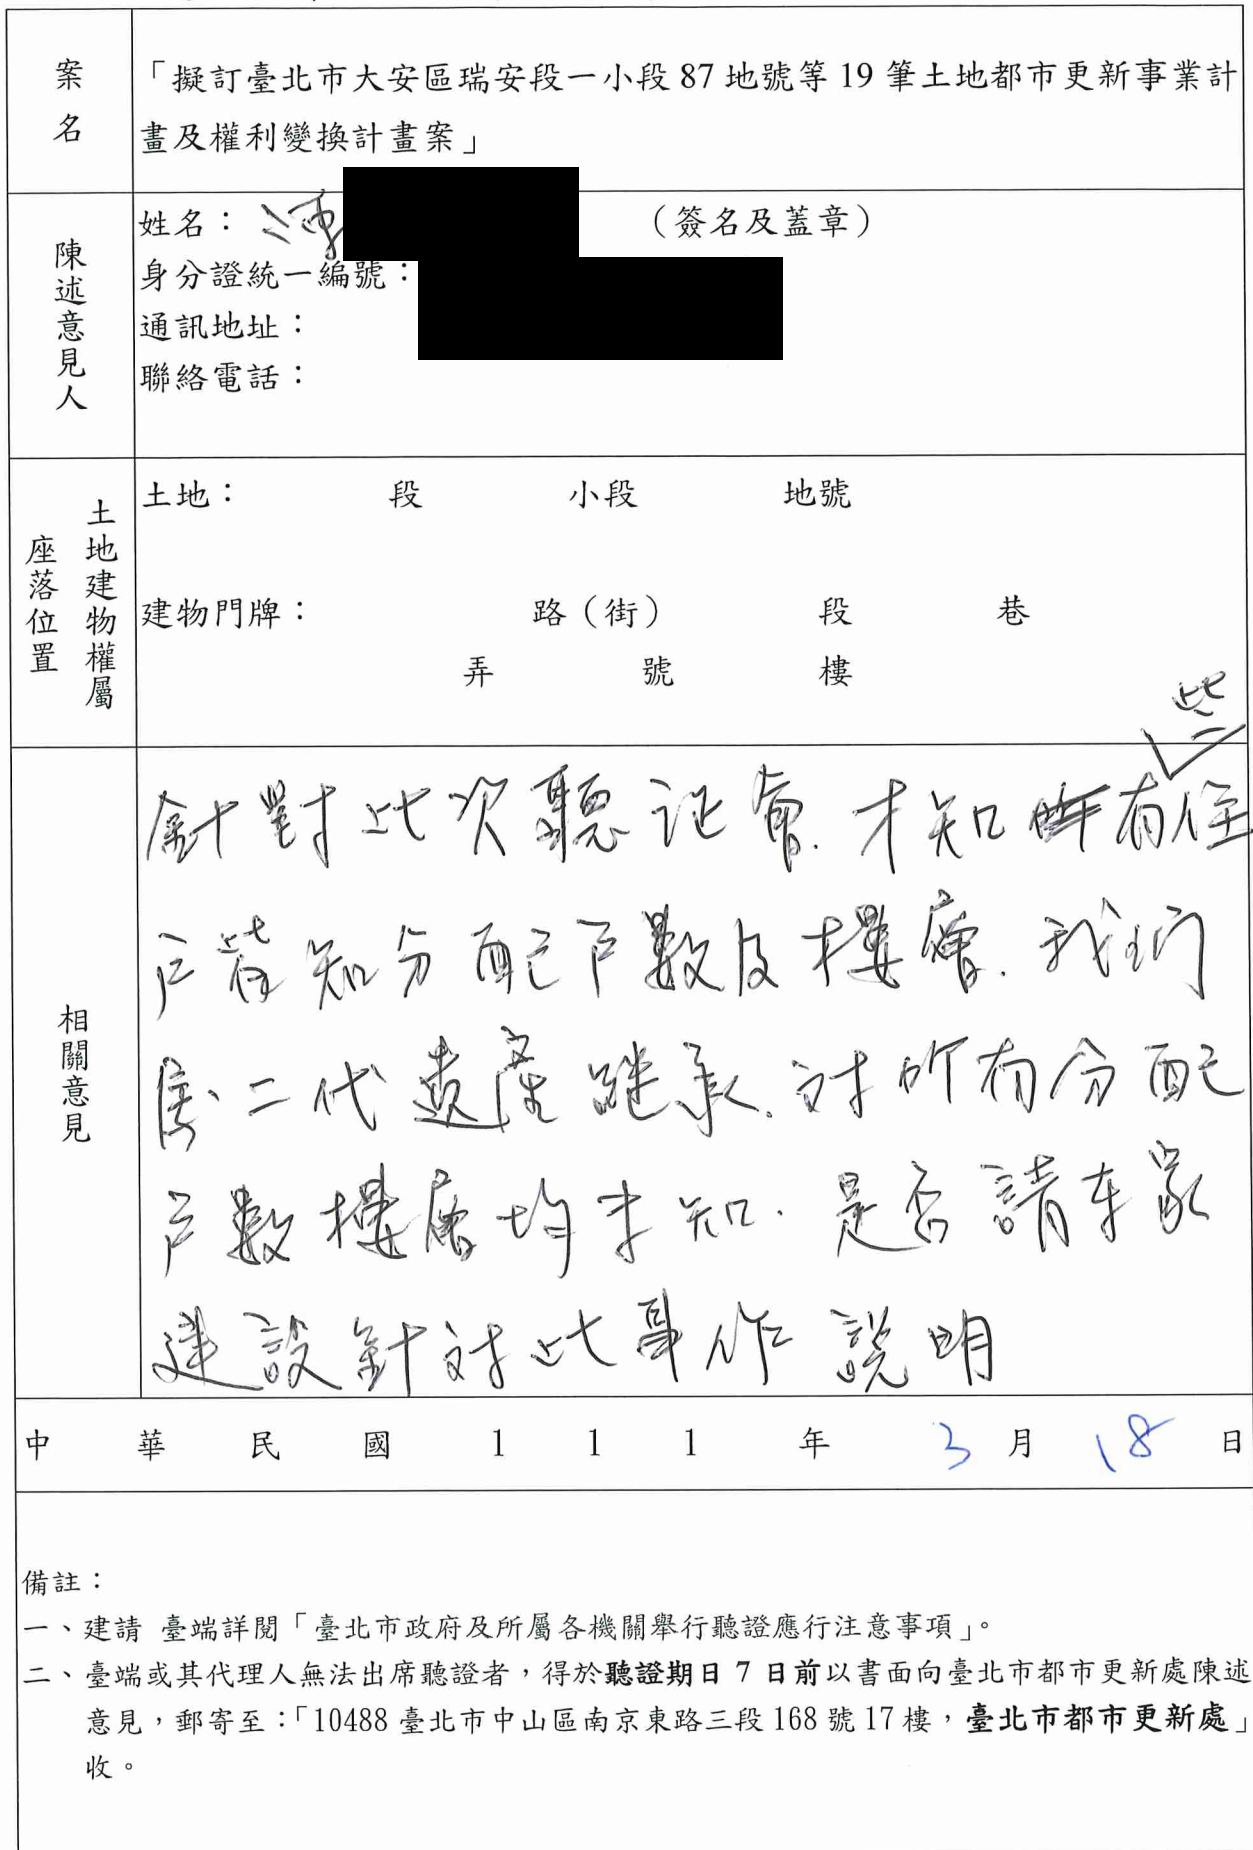 案名
「擬訂臺北市大安區瑞安段一小段 87 地號等 19 筆土地都市更新事業計
畫及權利變換計畫案」
陳述意見人
姓名： （簽名及蓋章）
身分證統一編號：
通訊地址：
聯絡電話：
土地建物權屬
座落位置
土地： 段 小段 地號
建物門牌： 路（街） 段 巷
弄 號 樓
相關意見
些
針對此次聽证會.才知有住
戶皆知分配戶數及樓層.我们
第二代遺產継承.对所有分配
戶數樓層均未知.是否請
建設針对此事作說明
中 華 民 國 1 1 1 年 3 月 18 日
備註：
一、建請 臺端詳閱「臺北市政府及所屬各機關舉行聽證應行注意事項」。
二、臺端或其代理人無法出席聽證者，得於聽證期日 7 日前以書面向臺北市都市更新處陳述
意見，郵寄至：「10488 臺北市中山區南京東路三段 168 號 17 樓，臺北市都市更新處」
收。